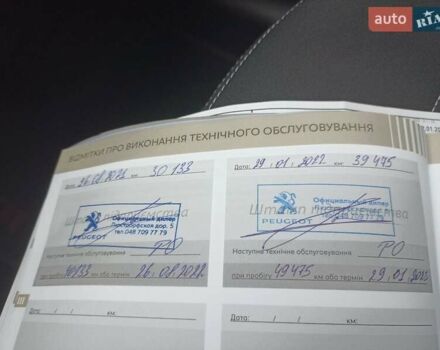 auto RIA
ВІДМІТКИ ПРО ВИКОНАННЯ ТЕХНІЧНОГО ОБСЛУГОВУВАННЯ
Дата: 26.08.2021 км: 30 133
Официальный дилер
дор. 5
тел.048 709 77 79
PEUGEOT
Наступне технічне обслуговування ТО
при пробігу 40133 км або термін 26.08.2022
Дата: 29, 01, 2022 км: 39 475
Штамп підприємства
Официальный дилер
048 709 77 79
PEUGEOT
Наступне технічне обслуговування ТО
при пробігу 49475 км або термін 29, 01, 2023
III
Дата: / / км:
Дата: / / км: